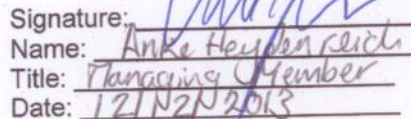 Signature:
Name: Anke Heydenreich
Title: Managing Member
Date: 12/ 2013